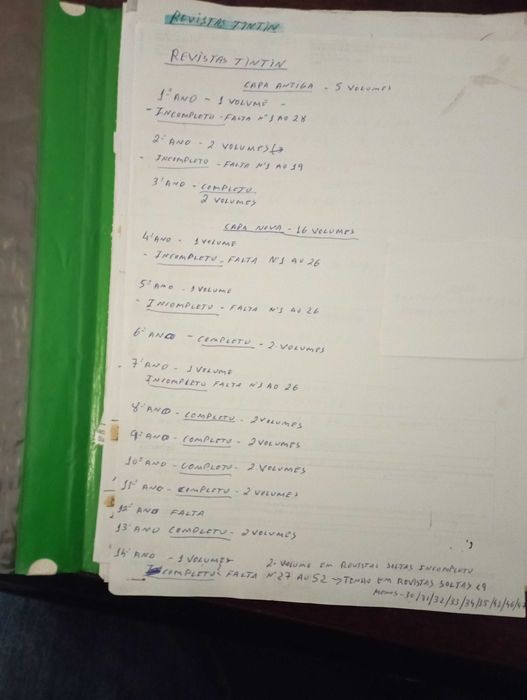 REVISTAS TINTIN
REVISTAS TINTIN
CAPA ANTIGA - 5 VOLUMES
1º ANO - 1 VOLUME -
- INCOMPLETO - FALTA Nº1 AO 28
2º ANO - 2 VOLUMES
- INCOMPLETO - FALTA Nº1 AO 19
3º ANO - COMPLETO
2 VOLUMES
CAPA NOVA - 16 VOLUMES
4º ANO - 1 VOLUME
- INCOMPLETO - FALTA Nº1 AO 26
5º ANO - 1 VOLUME
- INCOMPLETO - FALTA Nº1 AO 26
6º ANO - COMPLETO - 2 VOLUMES
7º ANO - 1 VOLUME
INCOMPLETO FALTA Nº1 AO 26
8º ANO - COMPLETO - 2 VOLUMES
9º ANO - COMPLETO - 2 VOLUMES
10º ANO - COMPLETO - 2 VOLUMES
11º ANO - COMPLETO - 2 VOLUMES
12º ANO FALTA
13º ANO COMPLETO - 2 VOLUMES
14º ANO - 1 VOLUMES 2º VOLUME EM REVISTAS SOLTAS INCOMPLETO
INCOMPLETO - FALTA Nº27 AO 52 → TENHO EM REVISTAS SOLTAS 29
MENOS - 30/31/32/33/34/35/42/46/